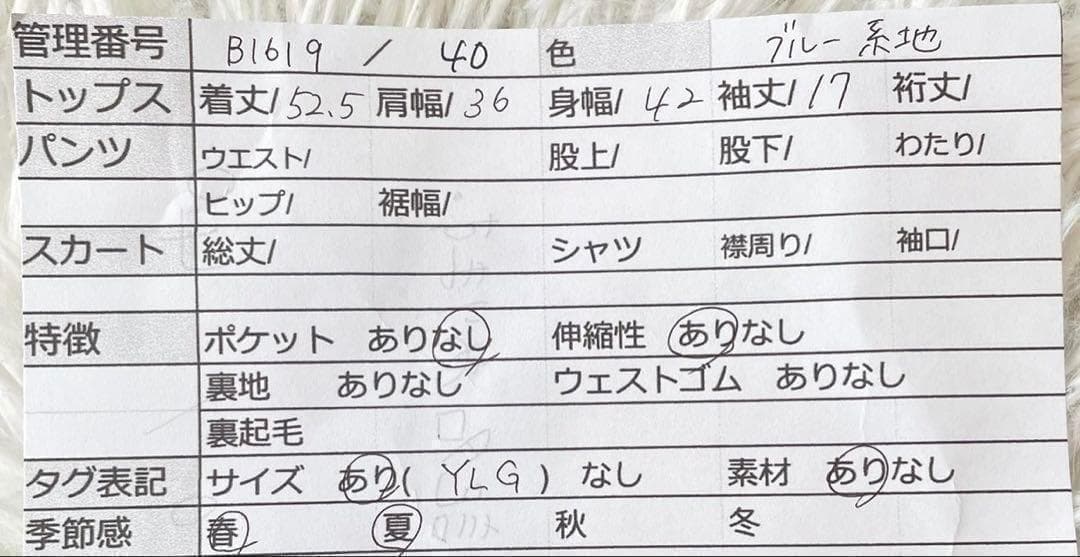 管理番号 B1619 / 40 色 ブルー系地
トップス 着丈/52.5 肩幅/36 身幅/ 42 袖丈/17 裄丈/
パンツ ウエスト/ 股上/ 股下/ わたり/
ヒップ/ 裾幅/
スカート 総丈/ シャツ 襟周り/ 袖口/
特徴 ポケット ありなし 伸縮性 ありなし
裏地 ありなし ウェストゴム ありなし
裏起毛
タグ表記 サイズ あり( YLG ) なし 素材 ありなし
季節感 春 夏 秋 冬